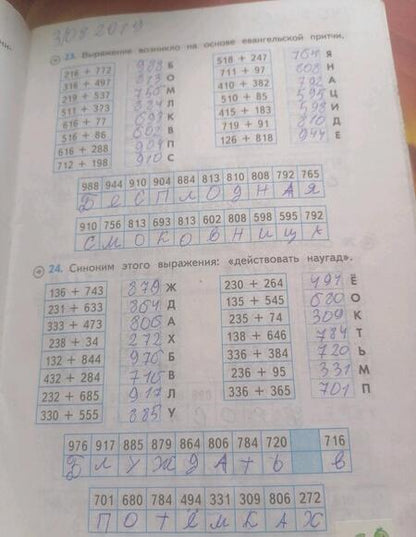 23. Выражение возникло на основе евангельской притчи.
216 + 772 988 Б 518 + 247 765 Я
316 + 497 813 О 711 + 97 808 Н
219 + 537 756 М 410 + 382 792 А
511 + 373 884 Л 510 + 85 595 Ц
616 + 77 693 К 415 + 183 598 И
516 + 86 602 В 719 + 91 810 Д
616 + 288 904 П 126 + 818 944 Е
712 + 198 910 С
988 944 910 904 884 813 810 808 792 765
Б Е С П Л О Д Н А Я
910 756 813 693 813 602 808 598 595 792
С М О К О В Н И Ц А
24. Синоним этого выражения: «действовать наугад».
136 + 743 879 Ж 230 + 264 494 Ё
231 + 633 864 Д 135 + 545 680 О
333 + 473 806 А 235 + 74 309 К
238 + 34 272 Х 138 + 646 784 Т
132 + 844 976 Б 336 + 384 720 Ь
432 + 284 716 В 236 + 95 331 М
232 + 685 917 Л 336 + 365 701 П
330 + 555 885 У
976 917 885 879 864 806 784 720 716
Б Л У Ж Д А Т Ь В
701 680 784 494 331 309 806 272
П О Т Ё М К А Х